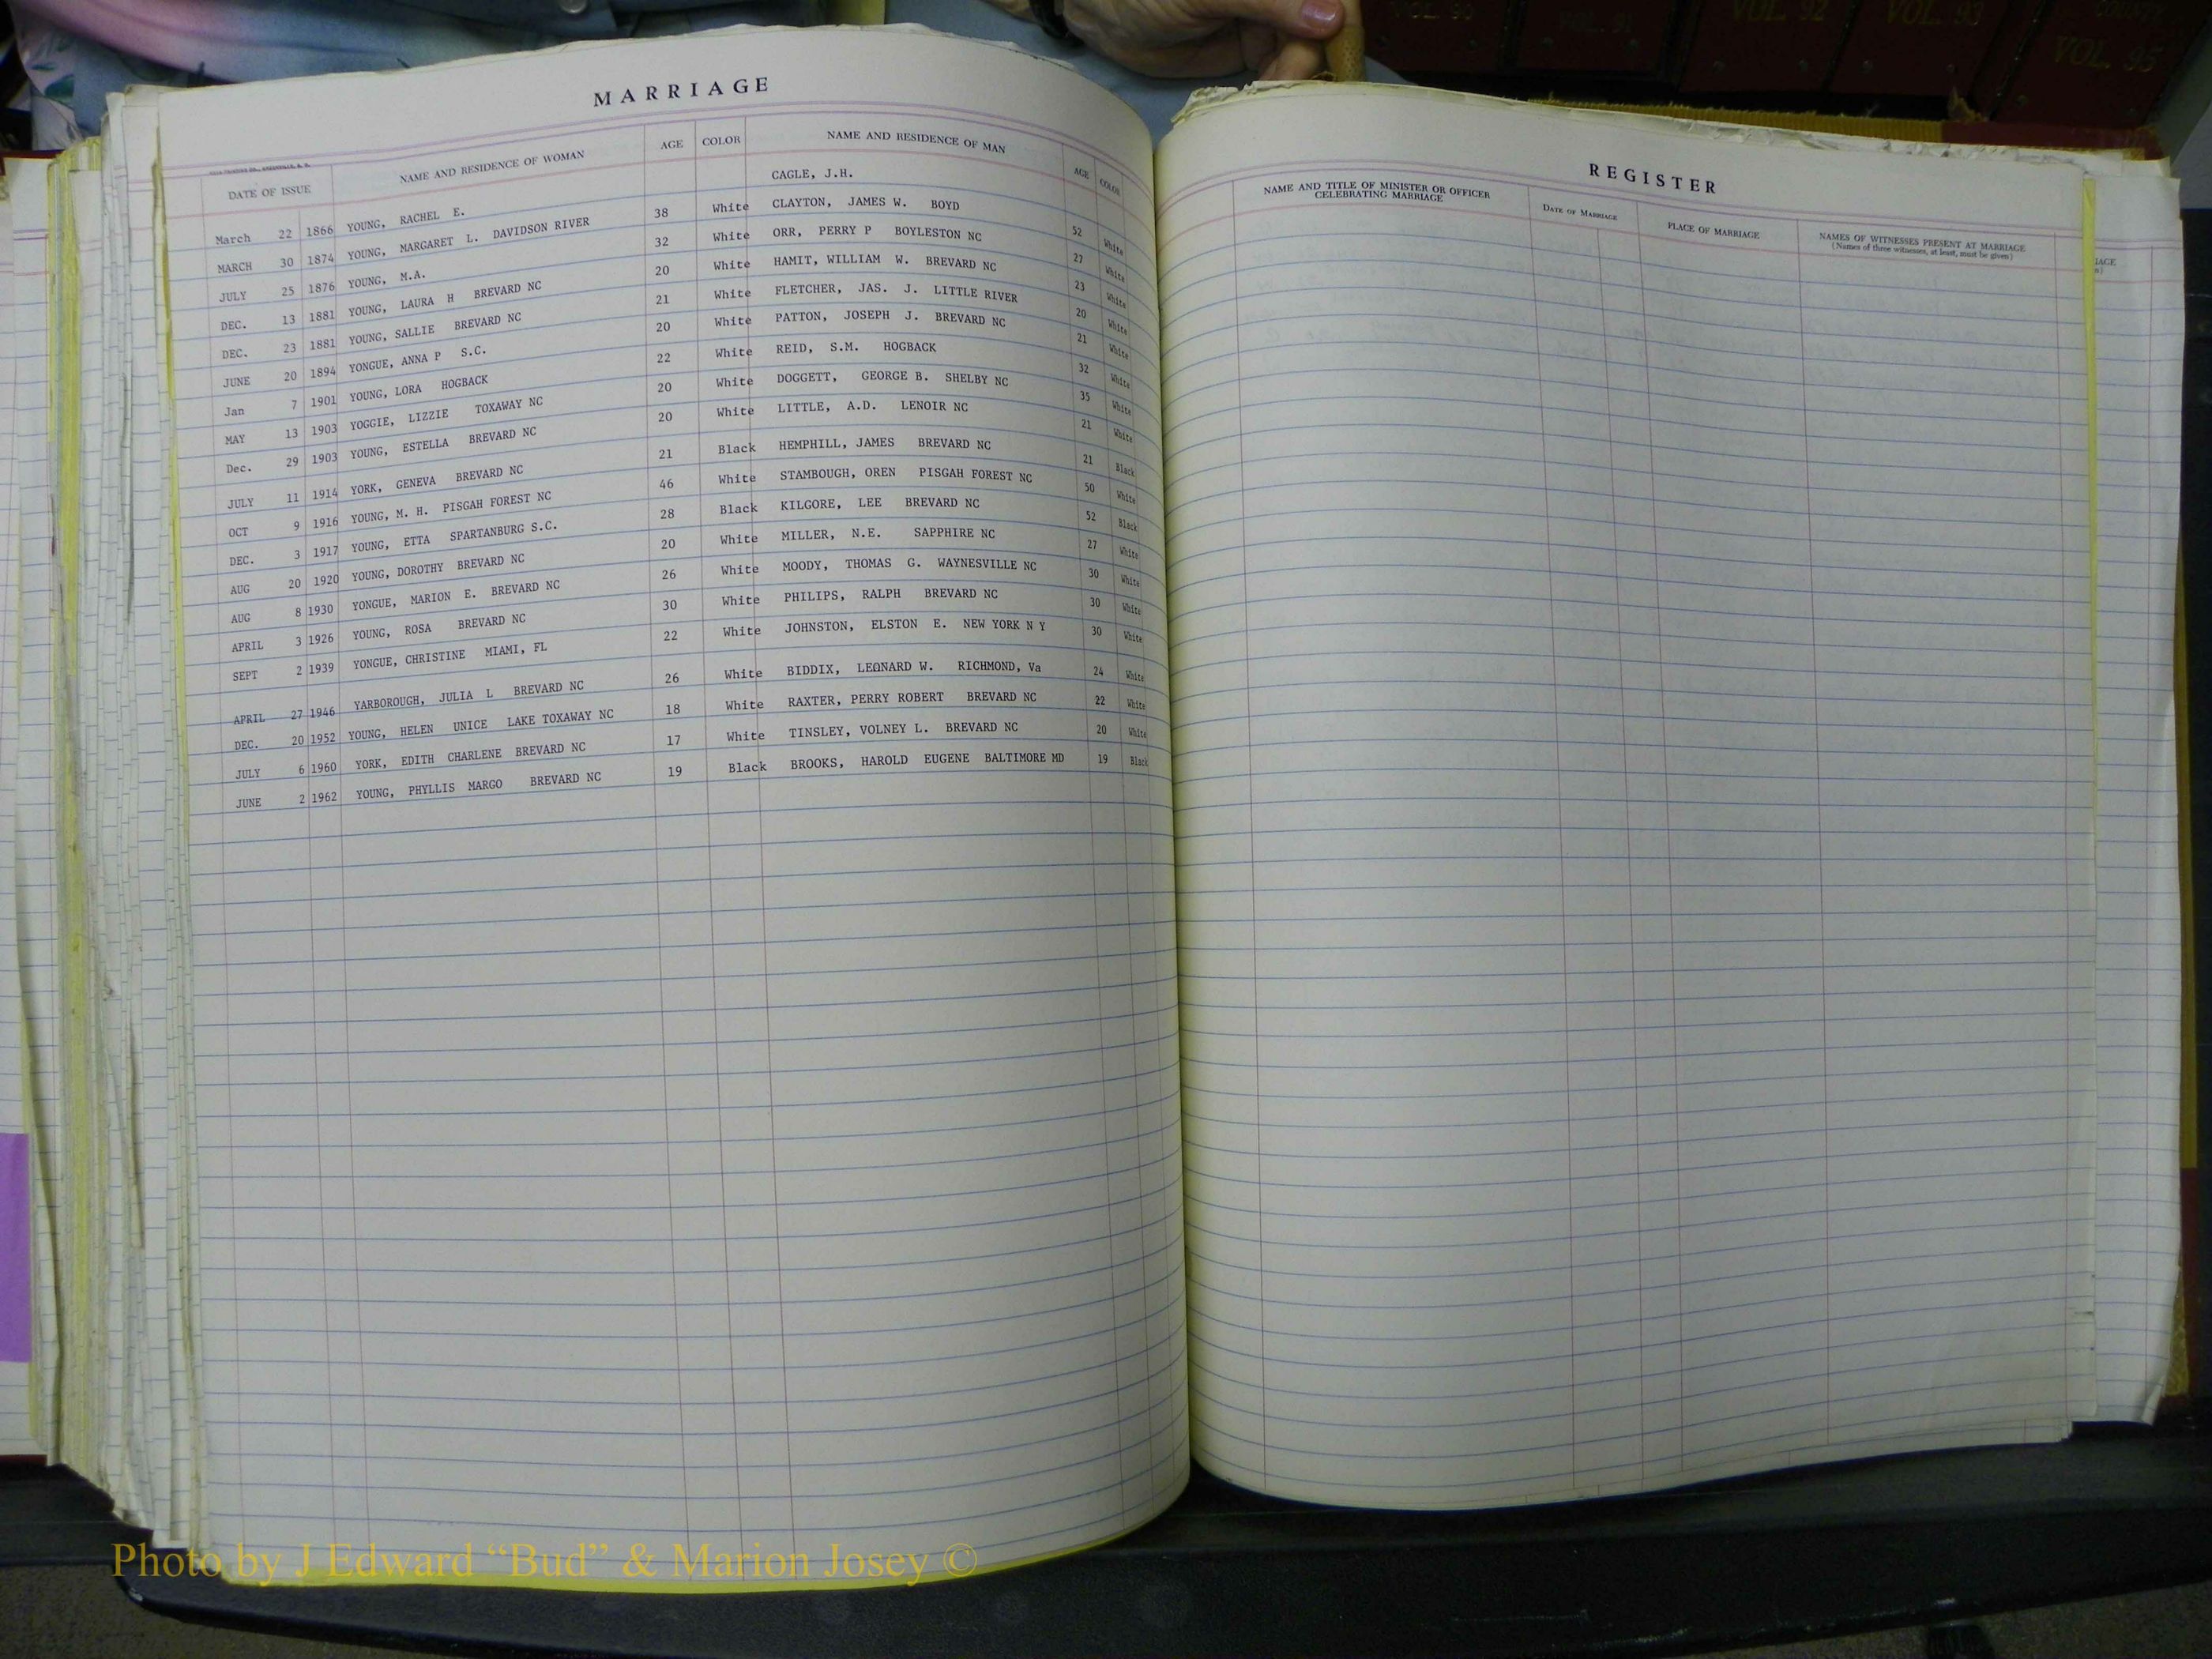 MARRIAGE
DATE OF ISSUE NAME AND RESIDENCE OF WOMAN AGE COLOR NAME AND RESIDENCE OF MAN AGE COLOR
March 22 1866 YOUNG, RACHEL E. CAGLE, J.H.
MARCH 30 1874 YOUNG, MARGARET L. DAVIDSON RIVER 38 White CLAYTON, JAMES W. BOYD 52 White
JULY 25 1876 YOUNG, M.A. 32 White ORR, PERRY P BOYLESTON NC 27 White
DEC. 13 1881 YOUNG, LAURA H BREVARD NC 20 White HAMIT, WILLIAM W. BREVARD NC 23 White
DEC. 23 1881 YOUNG, SALLIE BREVARD NC 21 White FLETCHER, JAS. J. LITTLE RIVER 20 White
JUNE 20 1894 YONGUE, ANNA P S.C. 20 White PATTON, JOSEPH J. BREVARD NC 21 White
Jan 7 1901 YOUNG, LORA HOGBACK 22 White REID, S.M. HOGBACK 32 White
MAY 13 1903 YOGGIE, LIZZIE TOXAWAY NC 20 White DOGGETT, GEORGE B. SHELBY NC 35 White
Dec. 29 1903 YOUNG, ESTELLA BREVARD NC 20 White LITTLE, A.D. LENOIR NC 21 White
JULY 11 1914 YORK, GENEVA BREVARD NC 21 Black HEMPHILL, JAMES BREVARD NC 21 Black
OCT 9 1916 YOUNG, M. H. PISGAH FOREST NC 46 White STAMBOUGH, OREN PISGAH FOREST NC 50 White
DEC. 3 1917 YOUNG, ETTA SPARTANBURG S.C. 28 Black KILGORE, LEE BREVARD NC 52 Black
AUG 20 1920 YOUNG, DOROTHY BREVARD NC 20 White MILLER, N.E. SAPPHIRE NC 27 White
AUG 8 1930 YONGUE, MARION E. BREVARD NC 26 White MOODY, THOMAS G. WAYNESVILLE NC 30 White
APRIL 3 1926 YOUNG, ROSA BREVARD NC 30 White PHILIPS, RALPH BREVARD NC 30 White
SEPT 2 1939 YONGUE, CHRISTINE MIAMI, FL 22 White JOHNSTON, ELSTON E. NEW YORK N Y 30 White
APRIL 27 1946 YARBOROUGH, JULIA L BREVARD NC 26 White BIDDIX, LEONARD W. RICHMOND, Va 24 White
DEC. 20 1952 YOUNG, HELEN UNICE LAKE TOXAWAY NC 18 White RAXTER, PERRY ROBERT BREVARD NC 22 White
JULY 6 1960 YORK, EDITH CHARLENE BREVARD NC 17 White TINSLEY, VOLNEY L. BREVARD NC 20 White
JUNE 2 1962 YOUNG, PHYLLIS MARGO BREVARD NC 19 Black BROOKS, HAROLD EUGENE BALTIMORE MD 19 Black
REGISTER
NAME AND TITLE OF MINISTER OR OFFICER CELEBRATING MARRIAGE DATE OF MARRIAGE PLACE OF MARRIAGE NAMES OF WITNESSES PRESENT AT MARRIAGE
(Names of three witnesses, at least, must be given)
VOL. 92
VOL. 93
VOL. 95
Photo by J Edward “Bud” & Marion Josey ©